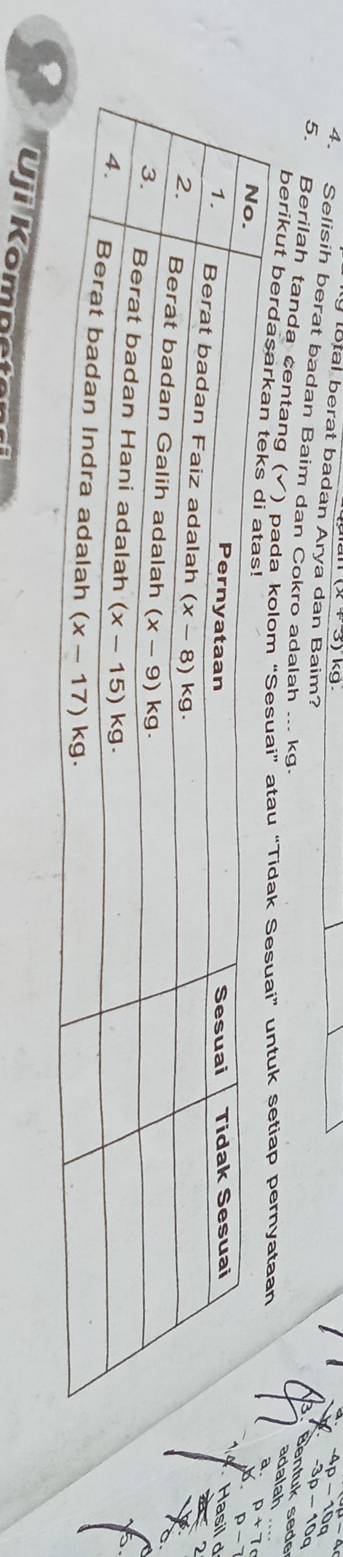 total berat badan Arya dan Baim?
(x + 3) kg.
4. Selisih berat badan Baim dan Cokro adalah ... kg.
5. Berilah tanda centang (✓) pada kolom "Sesuai" atau "Tidak Sesuai" untuk setiap pernyataan
berikut berdasarkan teks di atas!
No. Pernyataan Sesuai Tidak Sesuai
1. Berat badan Faiz adalah (x – 8) kg.
2. Berat badan Galih adalah (x – 9) kg.
3. Berat badan Hani adalah (x – 15) kg.
4. Berat badan Indra adalah (x – 17) kg.
Uji Kompetensi
-4p – 10q
-3p – 10q
3. Bentuk sede
adalah ....
a. p + 7
b. p – 7
14. Hasil d
15.